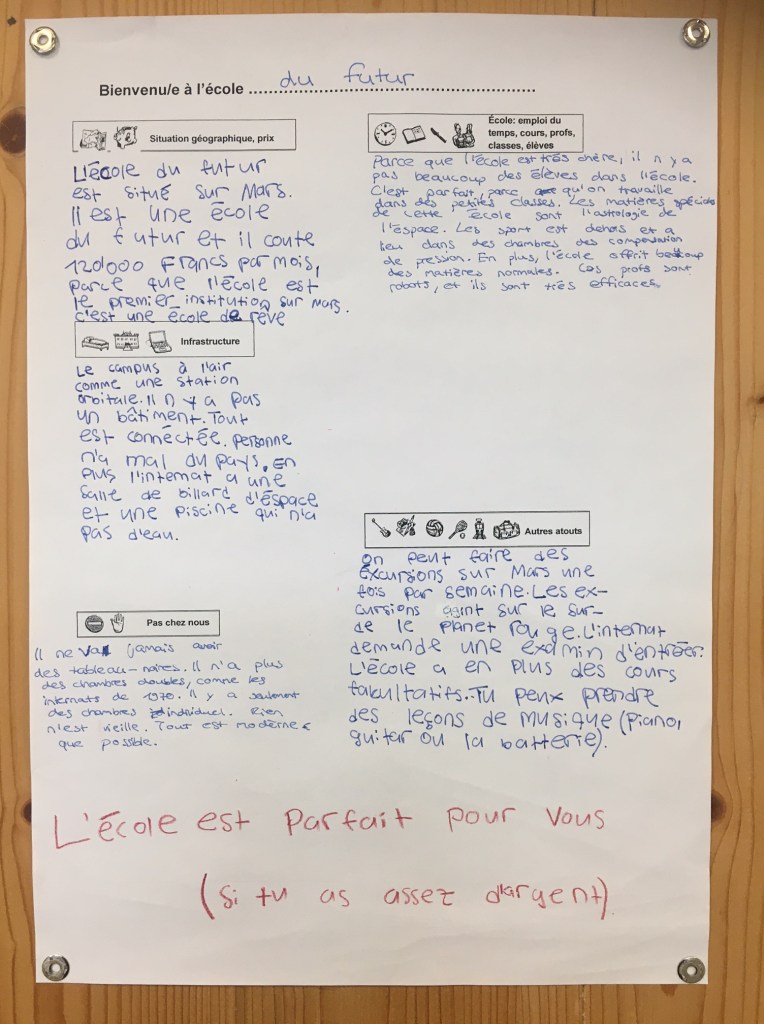 Bienvenu/e à l'école du futur
Situation géographique, prix
L'école du futur
est situé sur Mars.
Il est une école
du futur et il coute
120'000 Francs par mois,
parce que l'école est
le premier institution sur Mars.
c'est une école de rêve
École: emploi du
temps, cours, profs,
classes, élèves
Parce que l'école est très chère, il n y a
pas beaucoup des élèves dans l'école.
C'est parfait, parce qu'on travaille
dans des petites classes. Les matières spéciales
de cette école sont l'astrologie de
l'éspace. Les sport est dehors et a
lieu dans des chambres des compensation
de pression. En plus, l'école offrit beaucoup
des matières normales. Les profs sont
robots, et ils sont très efficaces.
Infrastructure
Le campus à l'air
comme une station
orbitale. Il n y a pas
un bâtiment. Tout
est connéctée. personne
n'a mal du pays. En
plus l'internat a une
salle de billard d'éspace
et une piscine qui n'a
pas d'eau.
Autres atouts
On peut faire des
éxcursions sur Mars une
fois par semaine. Les ex-
cursions sur le sur-
de le planet rouge. L'internat
demande une examin d'entréer.
L'école a en plus des cours
fakultatifs. Tu peux prendre
des leçons de musique (piano,
guitar ou la batterie).
Pas chez nous
Il ne va jamais avoir
des tableau-noires. Il n'a plus
des chambres doubles, comme les
internats de 1970. Il y a seulement
des chambres individuel. Rien
n'est vieille. Tout est moderne
que possible.
L'école est parfait pour vous
(si tu as assez d'argent).